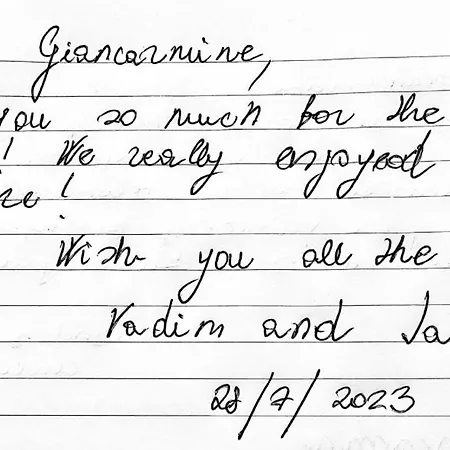 Giancarmine,
you so much for the
! We really enjoyed
re!
Wish you all the
Vadim and Ja
28/7/2023